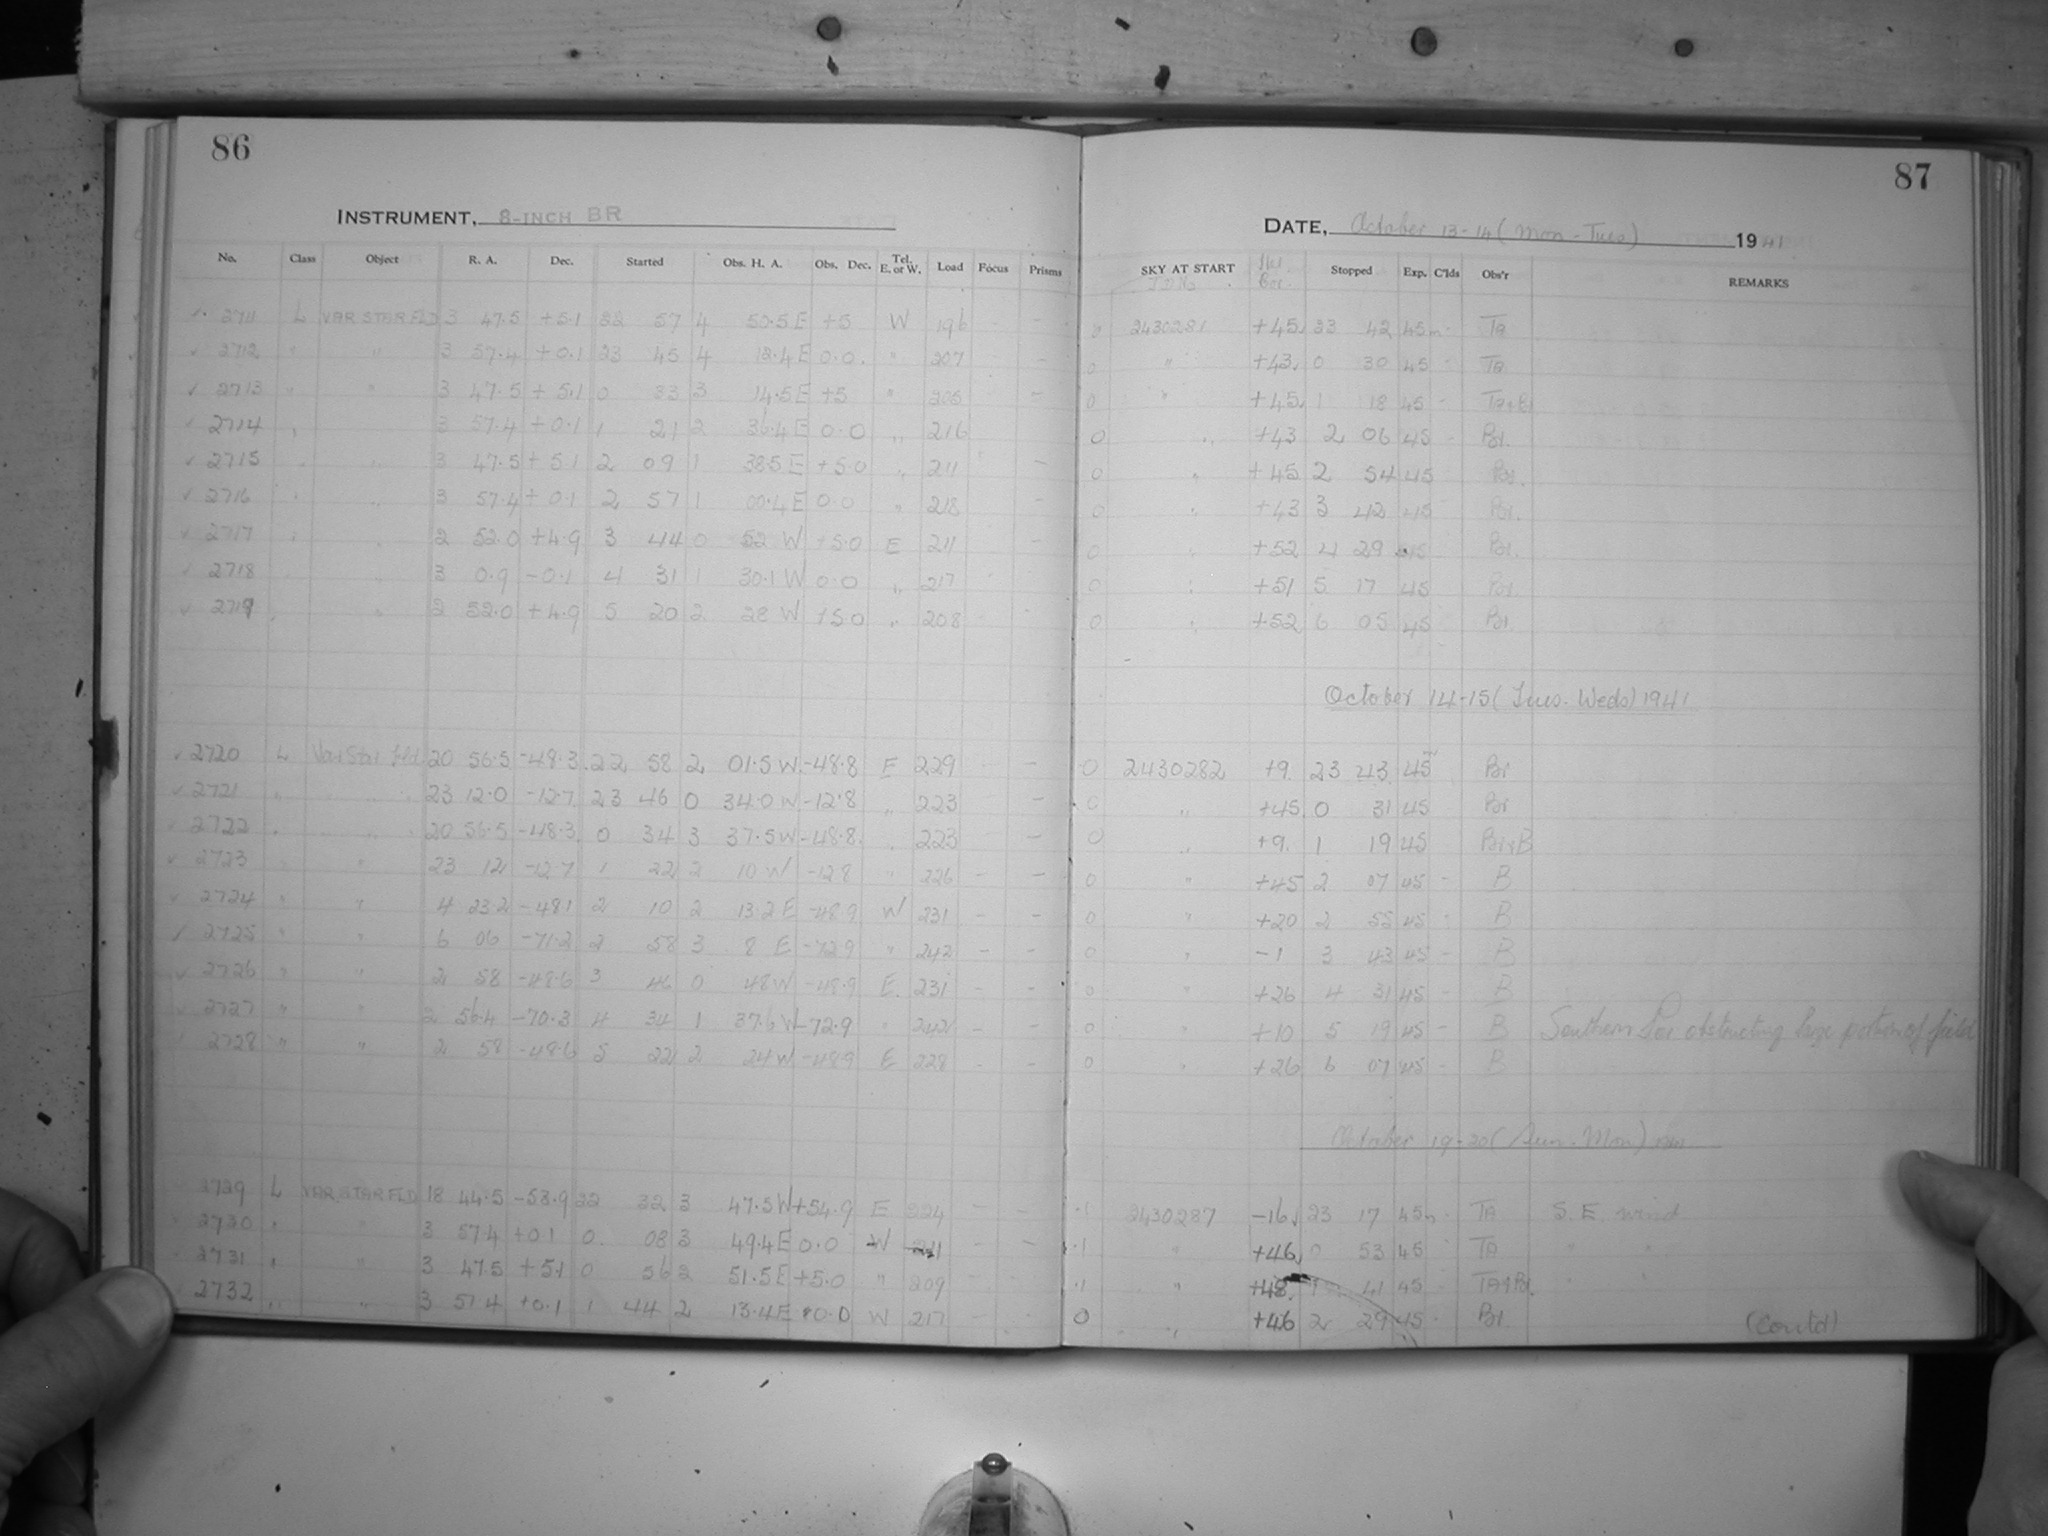 86
INSTRUMENT, 8-INCH BR
No. Class Object R. A. Dec. Started Obs. H. A. Obs. Dec. Tel. E. or W. Load Focus Prisms
2711 L VAR STAR FLD 3 47.5 +5.1 22 57 4 50.5 E +5 W 196
2712 " " 3 57.4 +0.1 23 45 4 12.4 E 0.0 " 207 -
2713 " " 3 47.5 +5.1 0 33 3 14.5 E +5 " 205 -
2714 3 57.4 +0.1 1 21 2 36.4 E 0.0 " 216
2715 3 47.5 +5.1 2 09 1 38.5 E +5.0 " 211 -
2716 3 57.4 +0.1 2 57 1 00.4 E 0.0 " 218 -
2717 2 52.0 +4.9 3 44 0 52 W +5.0 E 211 -
2718 3 0.9 -0.1 4 31 1 30.1 W 0.0 " 217
2719 2 52.0 +4.9 5 20 2 28 W +5.0 " 208
2720 L Var Star fld 20 56.5 -48.3 22 58 2 01.5 W -48.8 E 229 -
2721 " " 23 12.0 -12.7 23 46 0 34.0 W -12.8 " 223 -
2722 " " 20 56.5 -48.3 0 34 3 37.5 W -48.8 " 223 -
2723 " " 23 12 -12.7 1 22 2 10 W -12.8 " 226 - -
2724 " " 4 23.2 -48.1 2 10 2 13.2 E -48.9 W 231 - -
2725 " " 6 06 -71.2 2 58 3 8 E -72.9 " 242 - -
2726 " " 2 58 -48.6 3 46 0 48 W -48.9 E 231 - -
2727 " " 2 56.4 -70.3 4 34 1 37.6 W -72.9 " 242 - -
2728 " " 2 58 -48.6 5 22 2 24 W -48.9 E 228 - -
2729 L VAR STAR FLD 18 44.5 -53.9 22 32 3 47.5 W +54.9 E 224 - -
2730 " " 3 57.4 +0.1 0 08 3 49.4 E 0.0 W - -
2731 " " 3 47.5 +5.1 0 56 2 51.5 E +5.0 " 209 - -
2732 " " 3 57.4 +0.1 1 44 2 13.4 E +0.0 W 217 - -
87
DATE, October 13-14 (Mon-Tues) 1941
SKY AT START Stopped Exp. C'lds Obs'r REMARKS
J.D.
0 2430281 +45 23 42 45m - Ta
0 " +43 0 30 45 - Ta
0 " +45 1 18 45 -
0 " +43 2 06 45 - Br.
0 " +45 2 54 45 Br.
0 " +43 3 42 45 Br.
0 " +52 4 29 45 Br.
0 " +51 5 17 45 Br.
0 " +52 6 05 45 Br.
October 14-15 (Tues. Weds) 1941
0 2430282 +9 23 43 45 Br
0 " +45 0 31 45 Br
0 " +9 1 19 45 Br+B
0 " +45 2 07 45 - B
0 " +20 2 55 45 - B
0 " -1 3 43 45 - B
0 " +26 4 31 45 - B
0 " +10 5 19 45 - B Southern obstructing large portion of field
0 " +26 6 07 45 - B
October 19-20 (Sun-Mon) 1941
.1 2430287 -16 23 17 45m - TA S. E. wind
.1 " +46 0 53 45 - TA " "
.1 " +48 1 41 45 - TA+Br. " "
0 " +46 2 29 45 - Br.
(Contd)